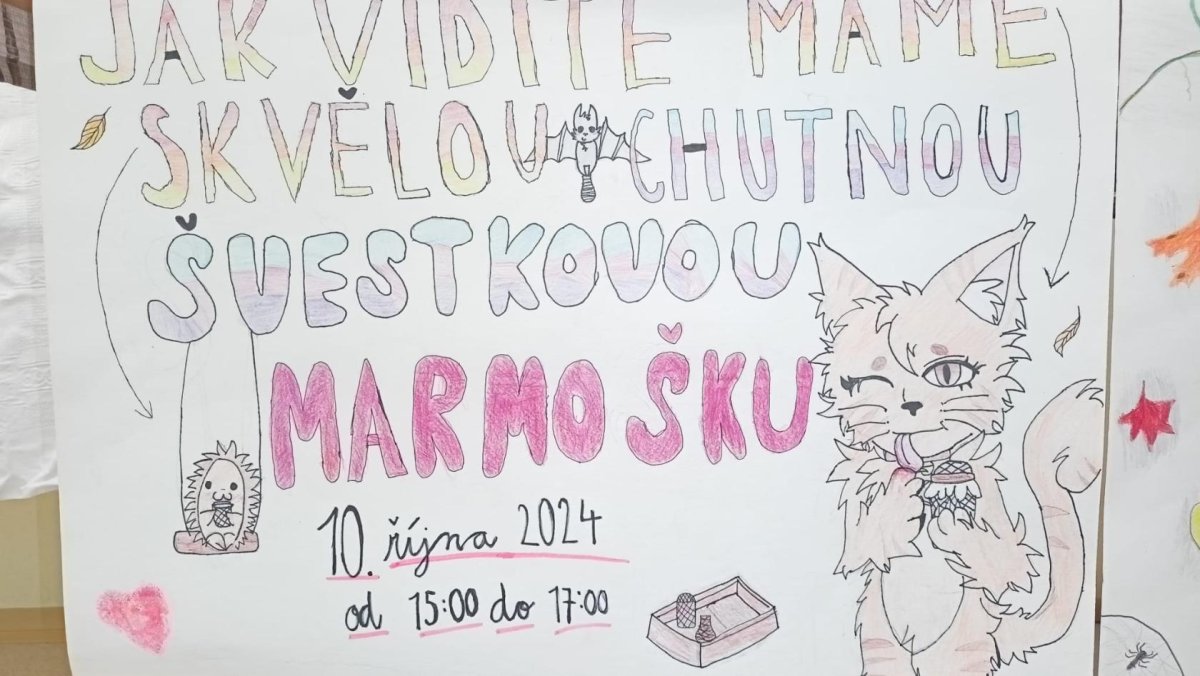 JAK VIDÍTE MÁME
SKVĚLOU CHUTNOU
ŠVESTKOVOU
MARMOŠKU
10. října 2024
od 15:00 do 17:00